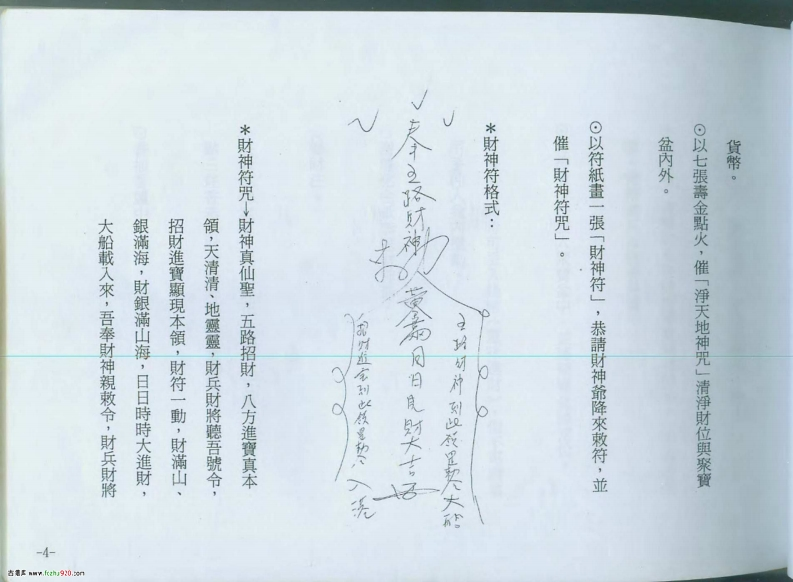 貨幣。
⊙以七張壽金點火，催「淨天地神咒」清淨財位與聚寶
盆內外。
⊙以符紙畫一張「財神符」，恭請財神爺降來敕符，並
催「財神符咒」。
＊財神符格式：
五路財神到此
奉五路財神
月日見財大吉
到此
入港
＊財神符咒→財神真仙聖，五路招財，八方進寶真本
領，天清清、地靈靈，財兵財將聽吾號令，
招財進寶顯現本領，財符一動，財滿山、
銀滿海，財銀滿山海，日日時時大進財，
大船載入來，吾奉財神親敕令，財兵財將
-4-
古籍库 www.fczhu920.com